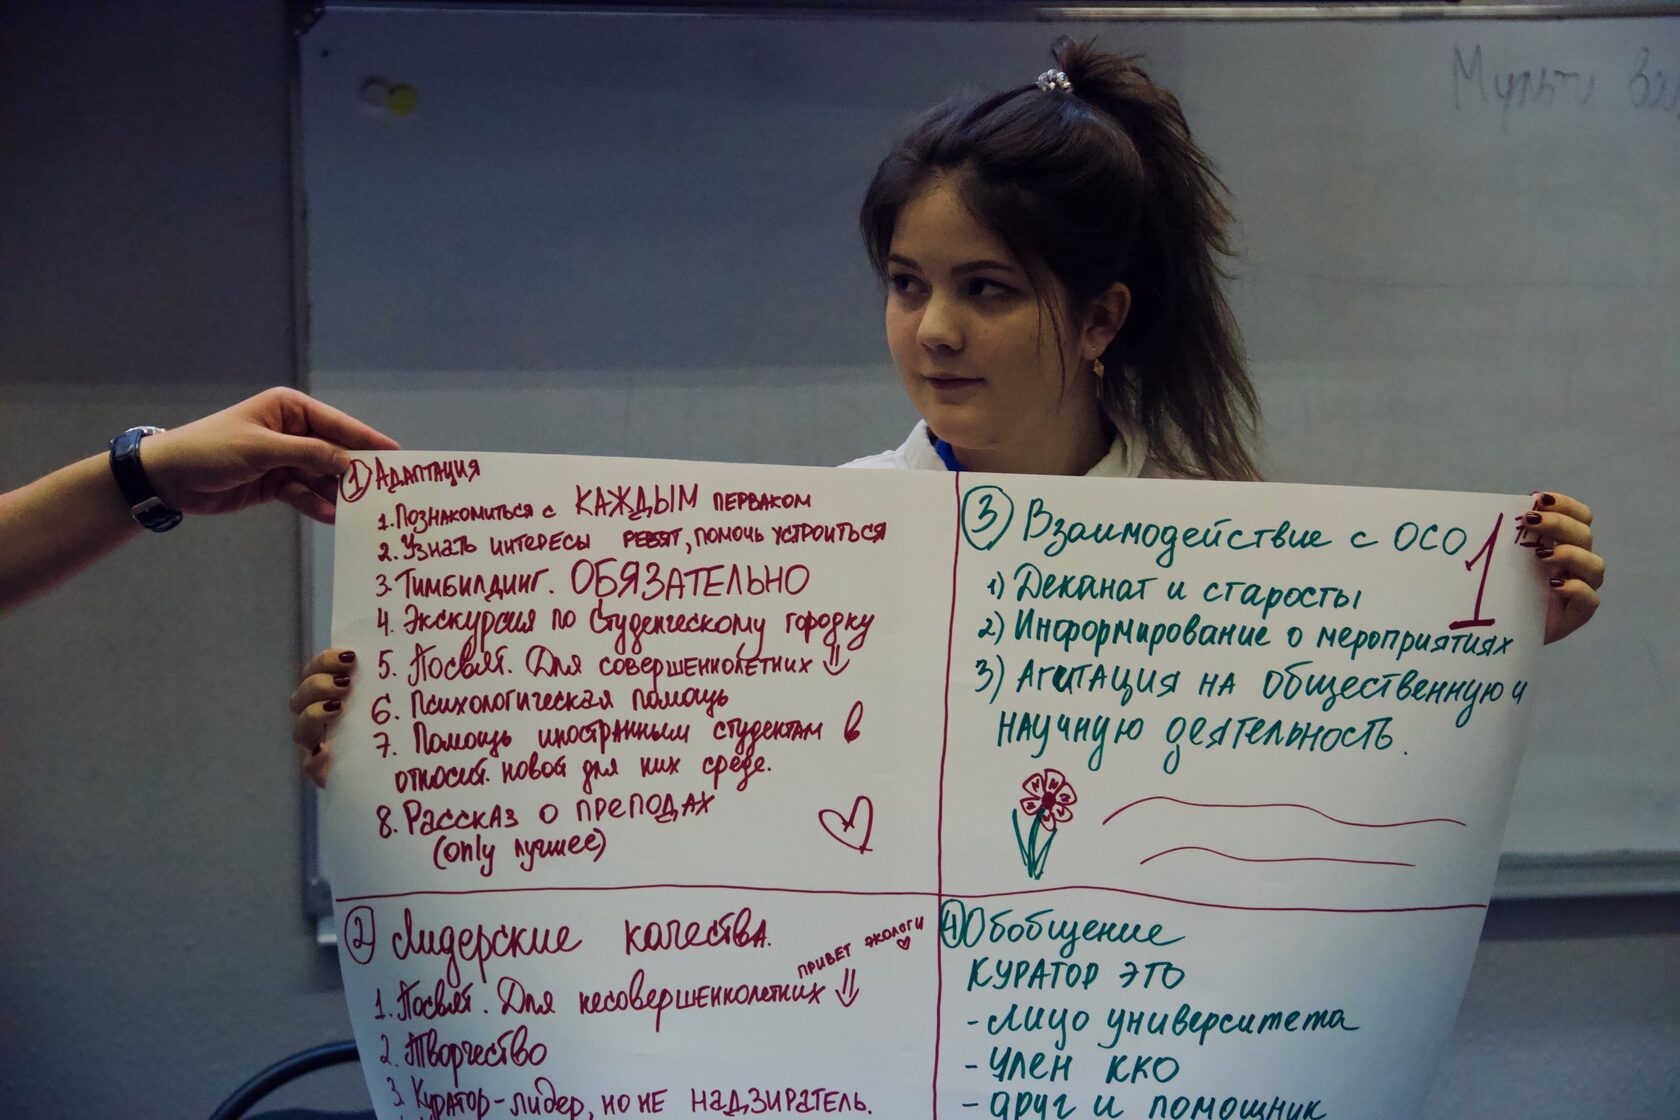 Мульти
① Адаптация
1. Познакомиться с КАЖДЫМ перваком
2. Узнать интересы ребят, помочь устроиться
3. Тимбилдинг. ОБЯЗАТЕЛЬНО
4. Экскурсия по студенческому городку
5. Посвят. Для совершеннолетних
6. Психологическая помощь
7. Помощь иностранным студентам в
относит. новой для них среде.
8. Рассказ о преподах
(only лучшее)
② Лидерские качества.
привет экологи
1. Посвят. Для несовершеннолетних
2. Творчество
3. Куратор-лидер, но не надзиратель.
③ Взаимодействие с ОСО
1
1) Деканат и старосты
2) Информирование о мероприятиях
3) Агитация на общественную и
научную деятельность.
④ Обобщение
Куратор это
- Лицо университета
- Член ККО
- друг и помощник